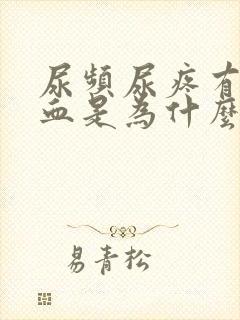 尿頻尿疼有
血是為什麼
易青松